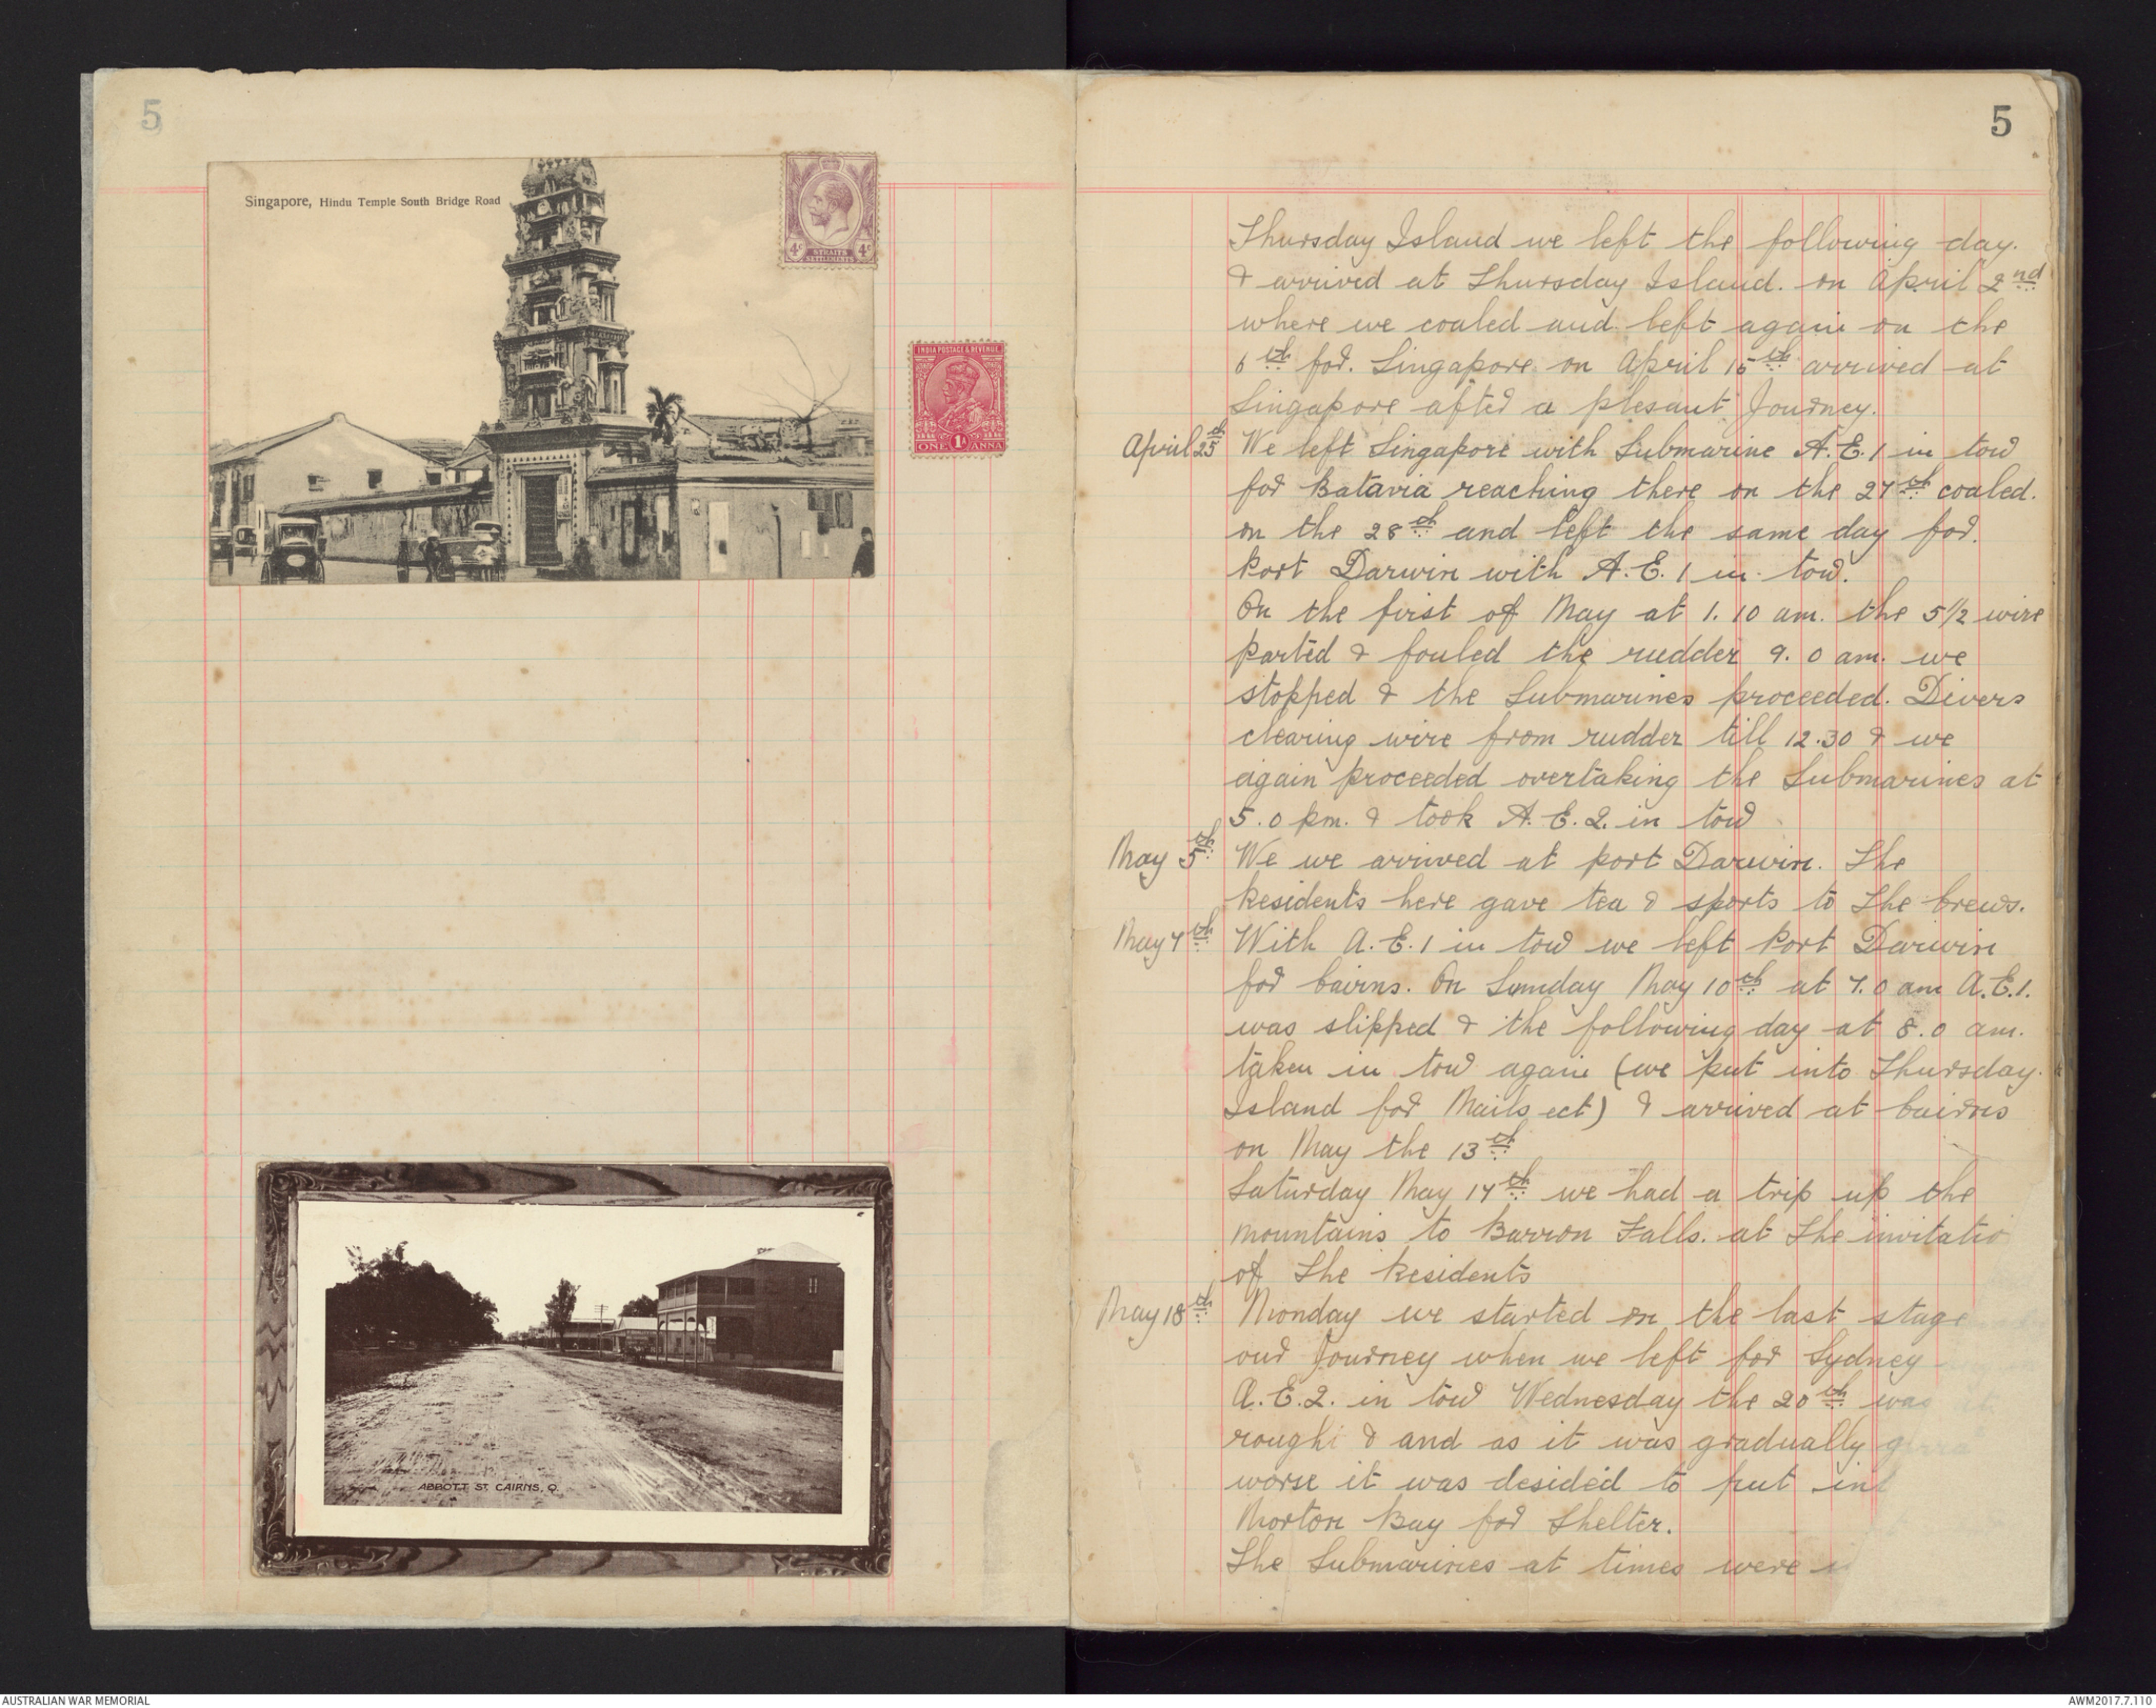 5
Singapore, Hindu Temple South Bridge Road
4c 4c
STRAITS
SETTLEMENTS
INDIA POSTAGE & REVENUE
ONE 1A ANNA
ABBOTT ST, CAIRNS, Q.
5
Thursday Island we left the following day.
& arrived at Thursday Island. on April 2nd
where we coaled and left again on the
6th for. Singapore on April 15th arrived at
Singapore after a plesant Journey.
April 25th We left Singapore with Submarine A.E.1 in tow
for Batavia reaching there on the 27th coaled.
on the 28th and left the same day for.
Port Darwin with A.E.1 in tow.
On the first of May at 1.10 am. the 5 1/2 wire
parted & fouled the rudder 9.0 am. we
stopped & the Submarines proceeded. Divers
clearing wire from rudder till 12.30 & we
again proceeded overtaking the Submarines at
5.0 pm. & took A.E.2. in tow
May 5th We we arrived at port Darwin. The
Residents here gave tea & sports to The Crews.
May 7th With A.E.1 in tow we left Port Darwin
for Cairns. On Sunday May 10th at 7.0 am A.E.1.
was slipped & the following day at 8.0 am.
taken in tow again (we put into Thursday.
Island for Mails ect) & arrived at Cairns
on May the 13th
Saturday May 17th we had a trip up the
mountains to Barron Falls. at The invitatio
of The Residents
May 18th Monday we started on the last stage
our Journey when we left for Sydney
A.E.2. in tow Wednesday the 20th was
rough & and as it was gradually
worse it was desided to put int
Morton Bay for Shelter.
The Submarines at times were
AUSTRALIAN WAR MEMORIAL
AWM2017.7.110